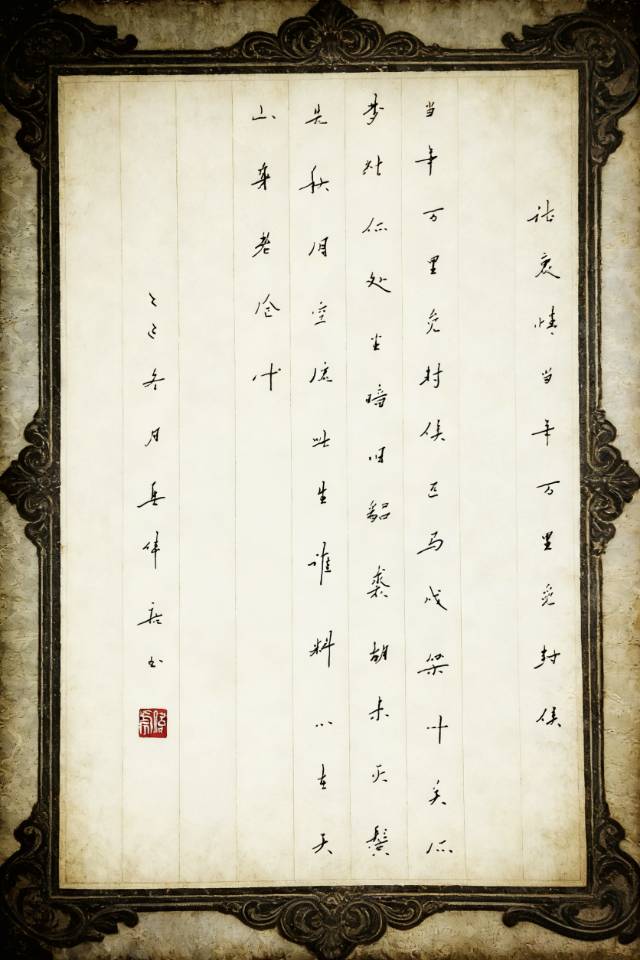 诉衷情当年万里觅封侯
当年万里觅封侯匹马戍梁州关河
梦断何处尘暗旧貂裘胡未灭鬓
先秋泪空流此生谁料心在天
山身老沧洲
乙巳冬月岳伟书